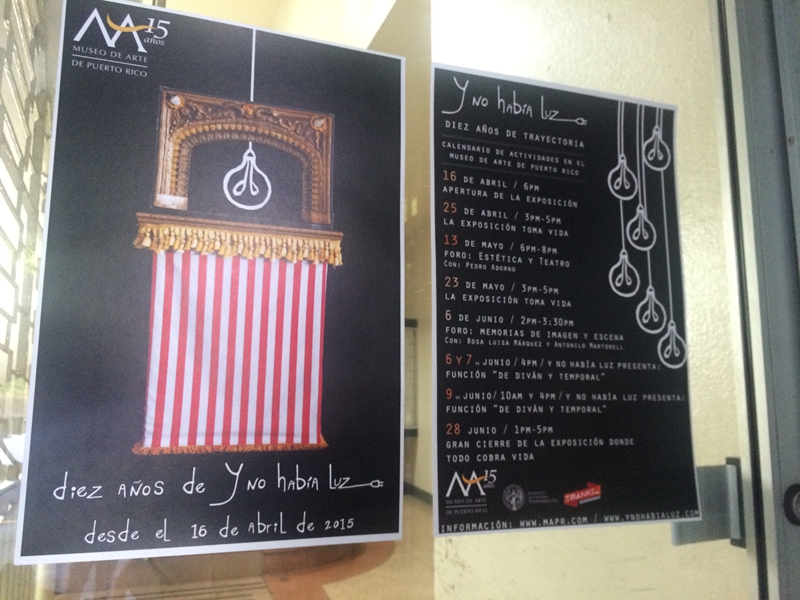 15
años
MUSEO DE ARTE
DE PUERTO RICO
diez años de Y no había Luz
desde el 16 de abril de 2015
Y no había Luz
DIEZ AÑOS DE TRAYECTORIA
CALENDARIO DE ACTIVIDADES EN EL
MUSEO DE ARTE DE PUERTO RICO
16 DE ABRIL / 6PM
APERTURA DE LA EXPOSICIÓN
25 DE ABRIL / 3PM-5PM
LA EXPOSICIÓN TOMA VIDA
13 DE MAYO / 6PM-8PM
FORO: ESTÉTICA Y TEATRO
CON: PEDRO ADORNO
23 DE MAYO / 3PM-5PM
LA EXPOSICIÓN TOMA VIDA
6 DE JUNIO / 2PM-3:30PM
FORO: MEMORIAS DE IMAGEN Y ESCENA
CON: ROSA LUISA MÁRQUEZ Y ANTONILO MARTORELL
6 Y 7 JUNIO / 4PM / Y NO HABÍA LUZ PRESENTA:
FUNCIÓN "DE DIVÁN Y TEMPORAL"
9 JUNIO/ 10AM Y 4PM / Y NO HABÍA LUZ PRESENTA:
FUNCIÓN "DE DIVÁN Y TEMPORAL"
28 JUNIO / 1PM-5PM
GRAN CIERRE DE LA EXPOSICIÓN DONDE
TODO COBRA VIDA
15
años
MUSEO DE ARTE
DE PUERTO RICO
INFORMACIÓN: WWW.MAPR.COM / WWW.YNOHABIALUZ.COM